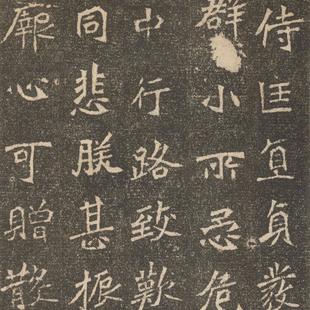 侍匡直貞發
群小所忌危
中行路致歎
同悲朕甚振
厥心可贈散